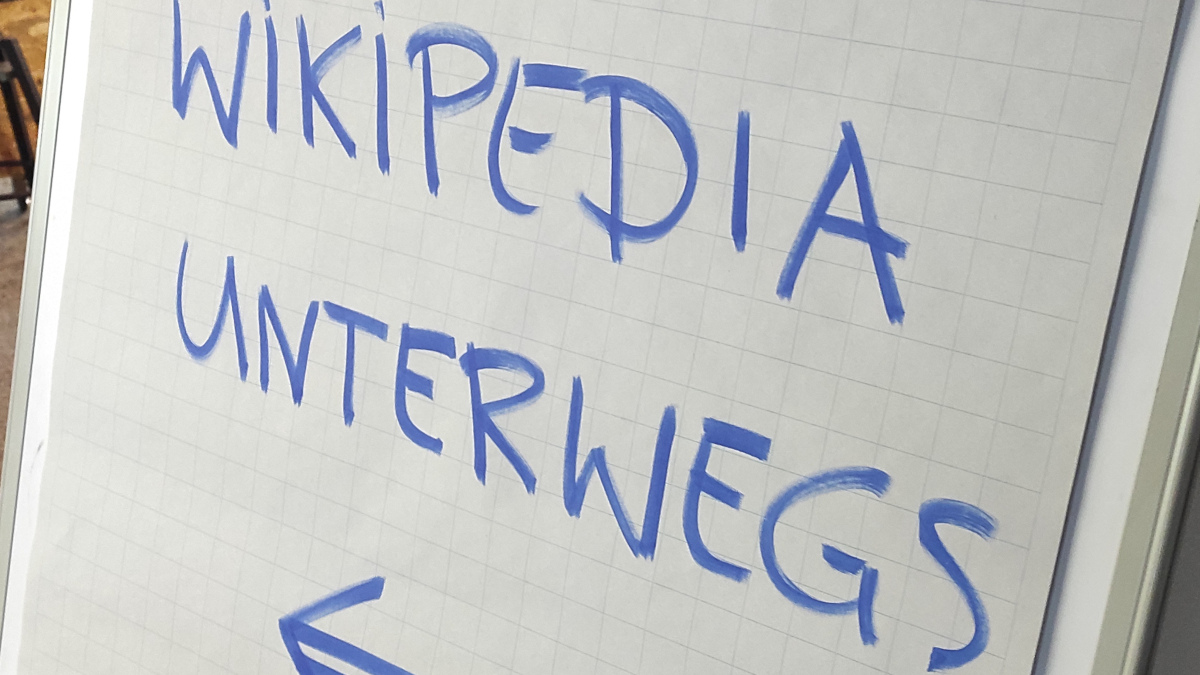 WIKIPEDIA
UNTERWEGS